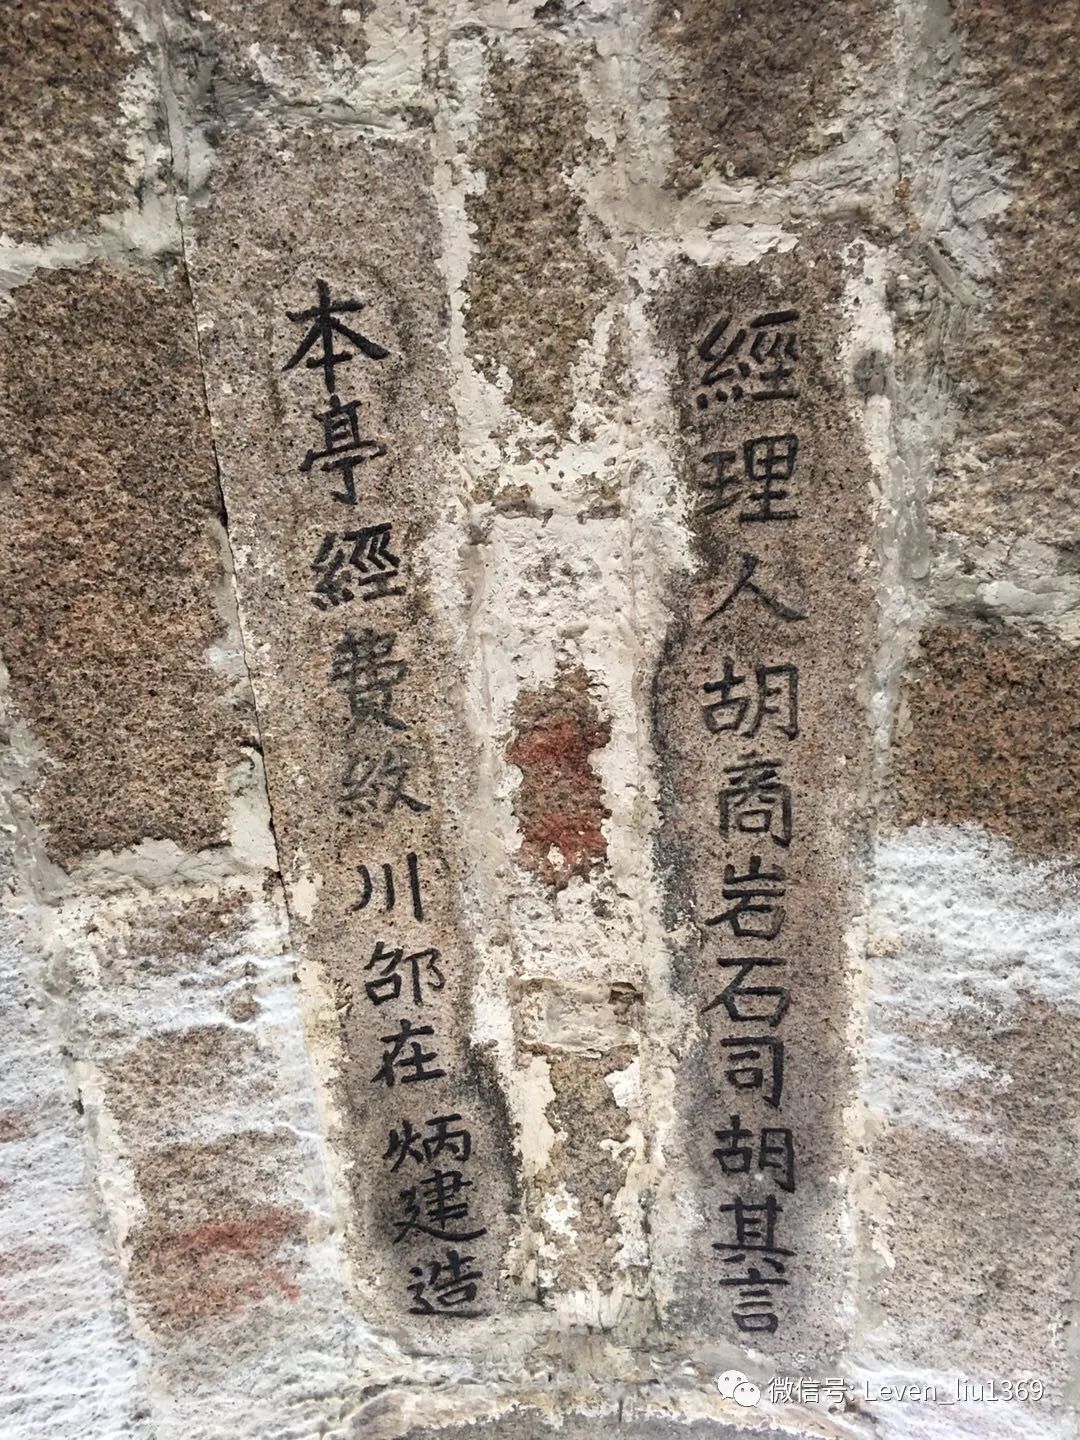 經理人胡商岩石司胡其言
本亭經費紋川邵在炳建造
微信号: Leven_liu1369